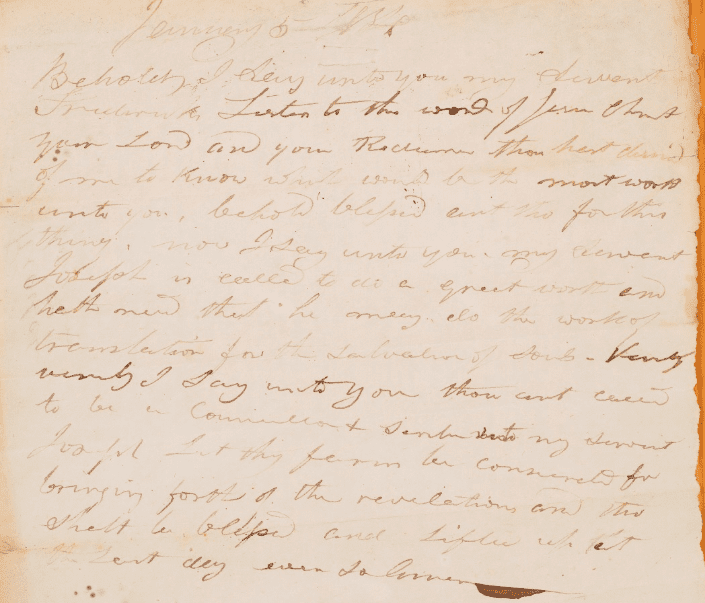 January 5
Behold, I Say unto you my Servent
Frederick Listen to the word of Jesus Christ
your Lord and your Redeemer thou hast desired
of me to know which would be the most worth
unto you, behold blessed art tho for this
thing. now I Say unto you my Servent
Joseph is called to do a great work and
hath need that he may do the work of
translation for the Salvation of Souls - Verily
verily I Say unto you thou art called
to be a Councillor & Scribe unto my Servent
Joseph Let thy farm be consecrated for
bringing forth of the revelations and tho
Shalt be blessed and lifted up at
the last day even so Amen